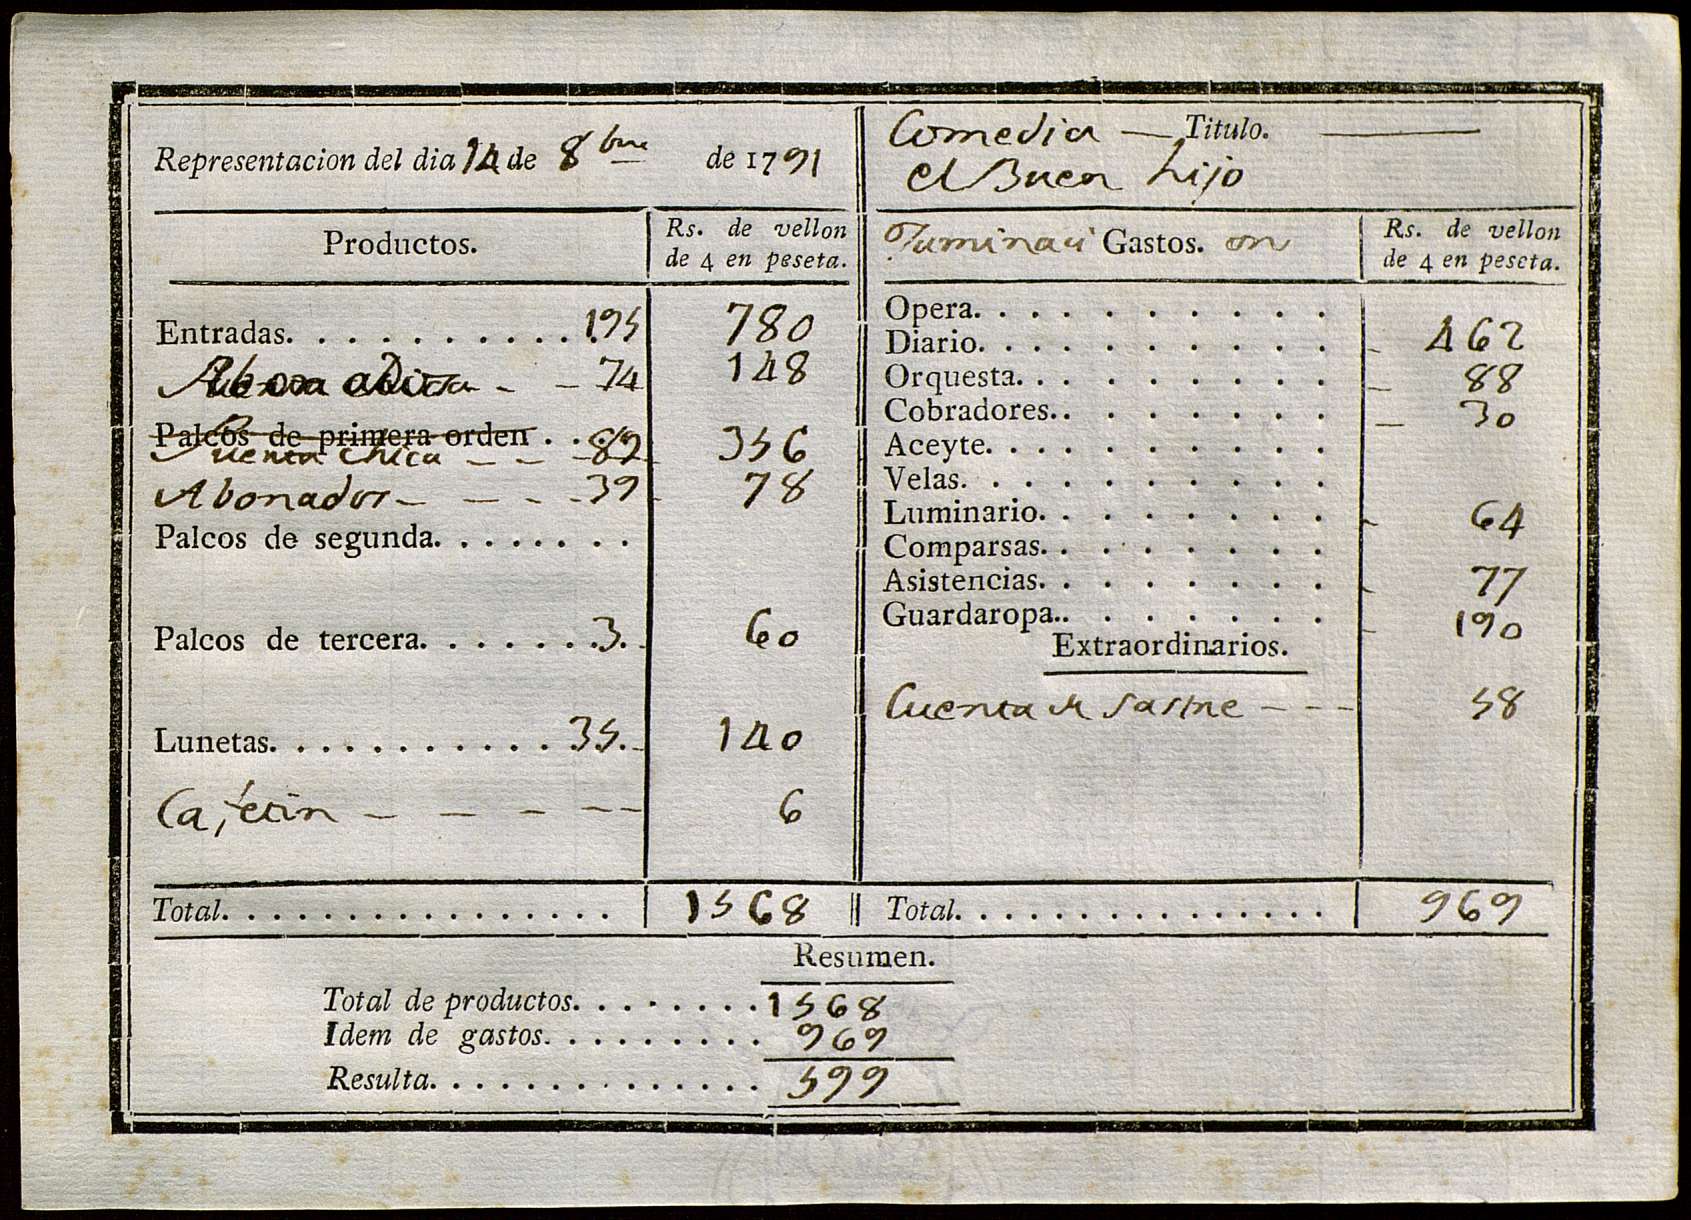 Representacion del dia 14 de 8bre de 1791
Productos. Rs. de vellon de 4 en peseta.
Entradas. . . . . . . . . . 195 780
- - 74 148
Palcos de primera orden . . .
Puerta chica - - - 89 356
Abonados - - - - 39 78
Palcos de segunda. . . . . . .
Palcos de tercera. . . . . . . 3. 60
Lunetas. . . . . . . . . . . 35. 140
- - - - - 6
Total. . . . . . . . . . . . . . . . 1568
Comedia — Titulo. —
el Buen hijo
Yluminaci Gastos. on Rs. de vellon de 4 en peseta.
Opera. . . . . . . . . .
Diario. . . . . . . . . . - 462
Orquesta. . . . . . . . . - 88
Cobradores. . . . . . . . - 30
Aceyte. . . . . . . . . .
Velas. . . . . . . . . .
Luminario. . . . . . . . - 64
Comparsas. . . . . . . .
Asistencias. . . . . . . . - 77
Guardaropa. . . . . . . . - 190
Extraordinarios.
Cuenta de Sastre - - - 58
Total. . . . . . . . . . . . . . . 969
Resumen.
Total de productos. . . . . . . . 1568
Idem de gastos. . . . . . . . . 969
Resulta. . . . . . . . . . . . . . 599